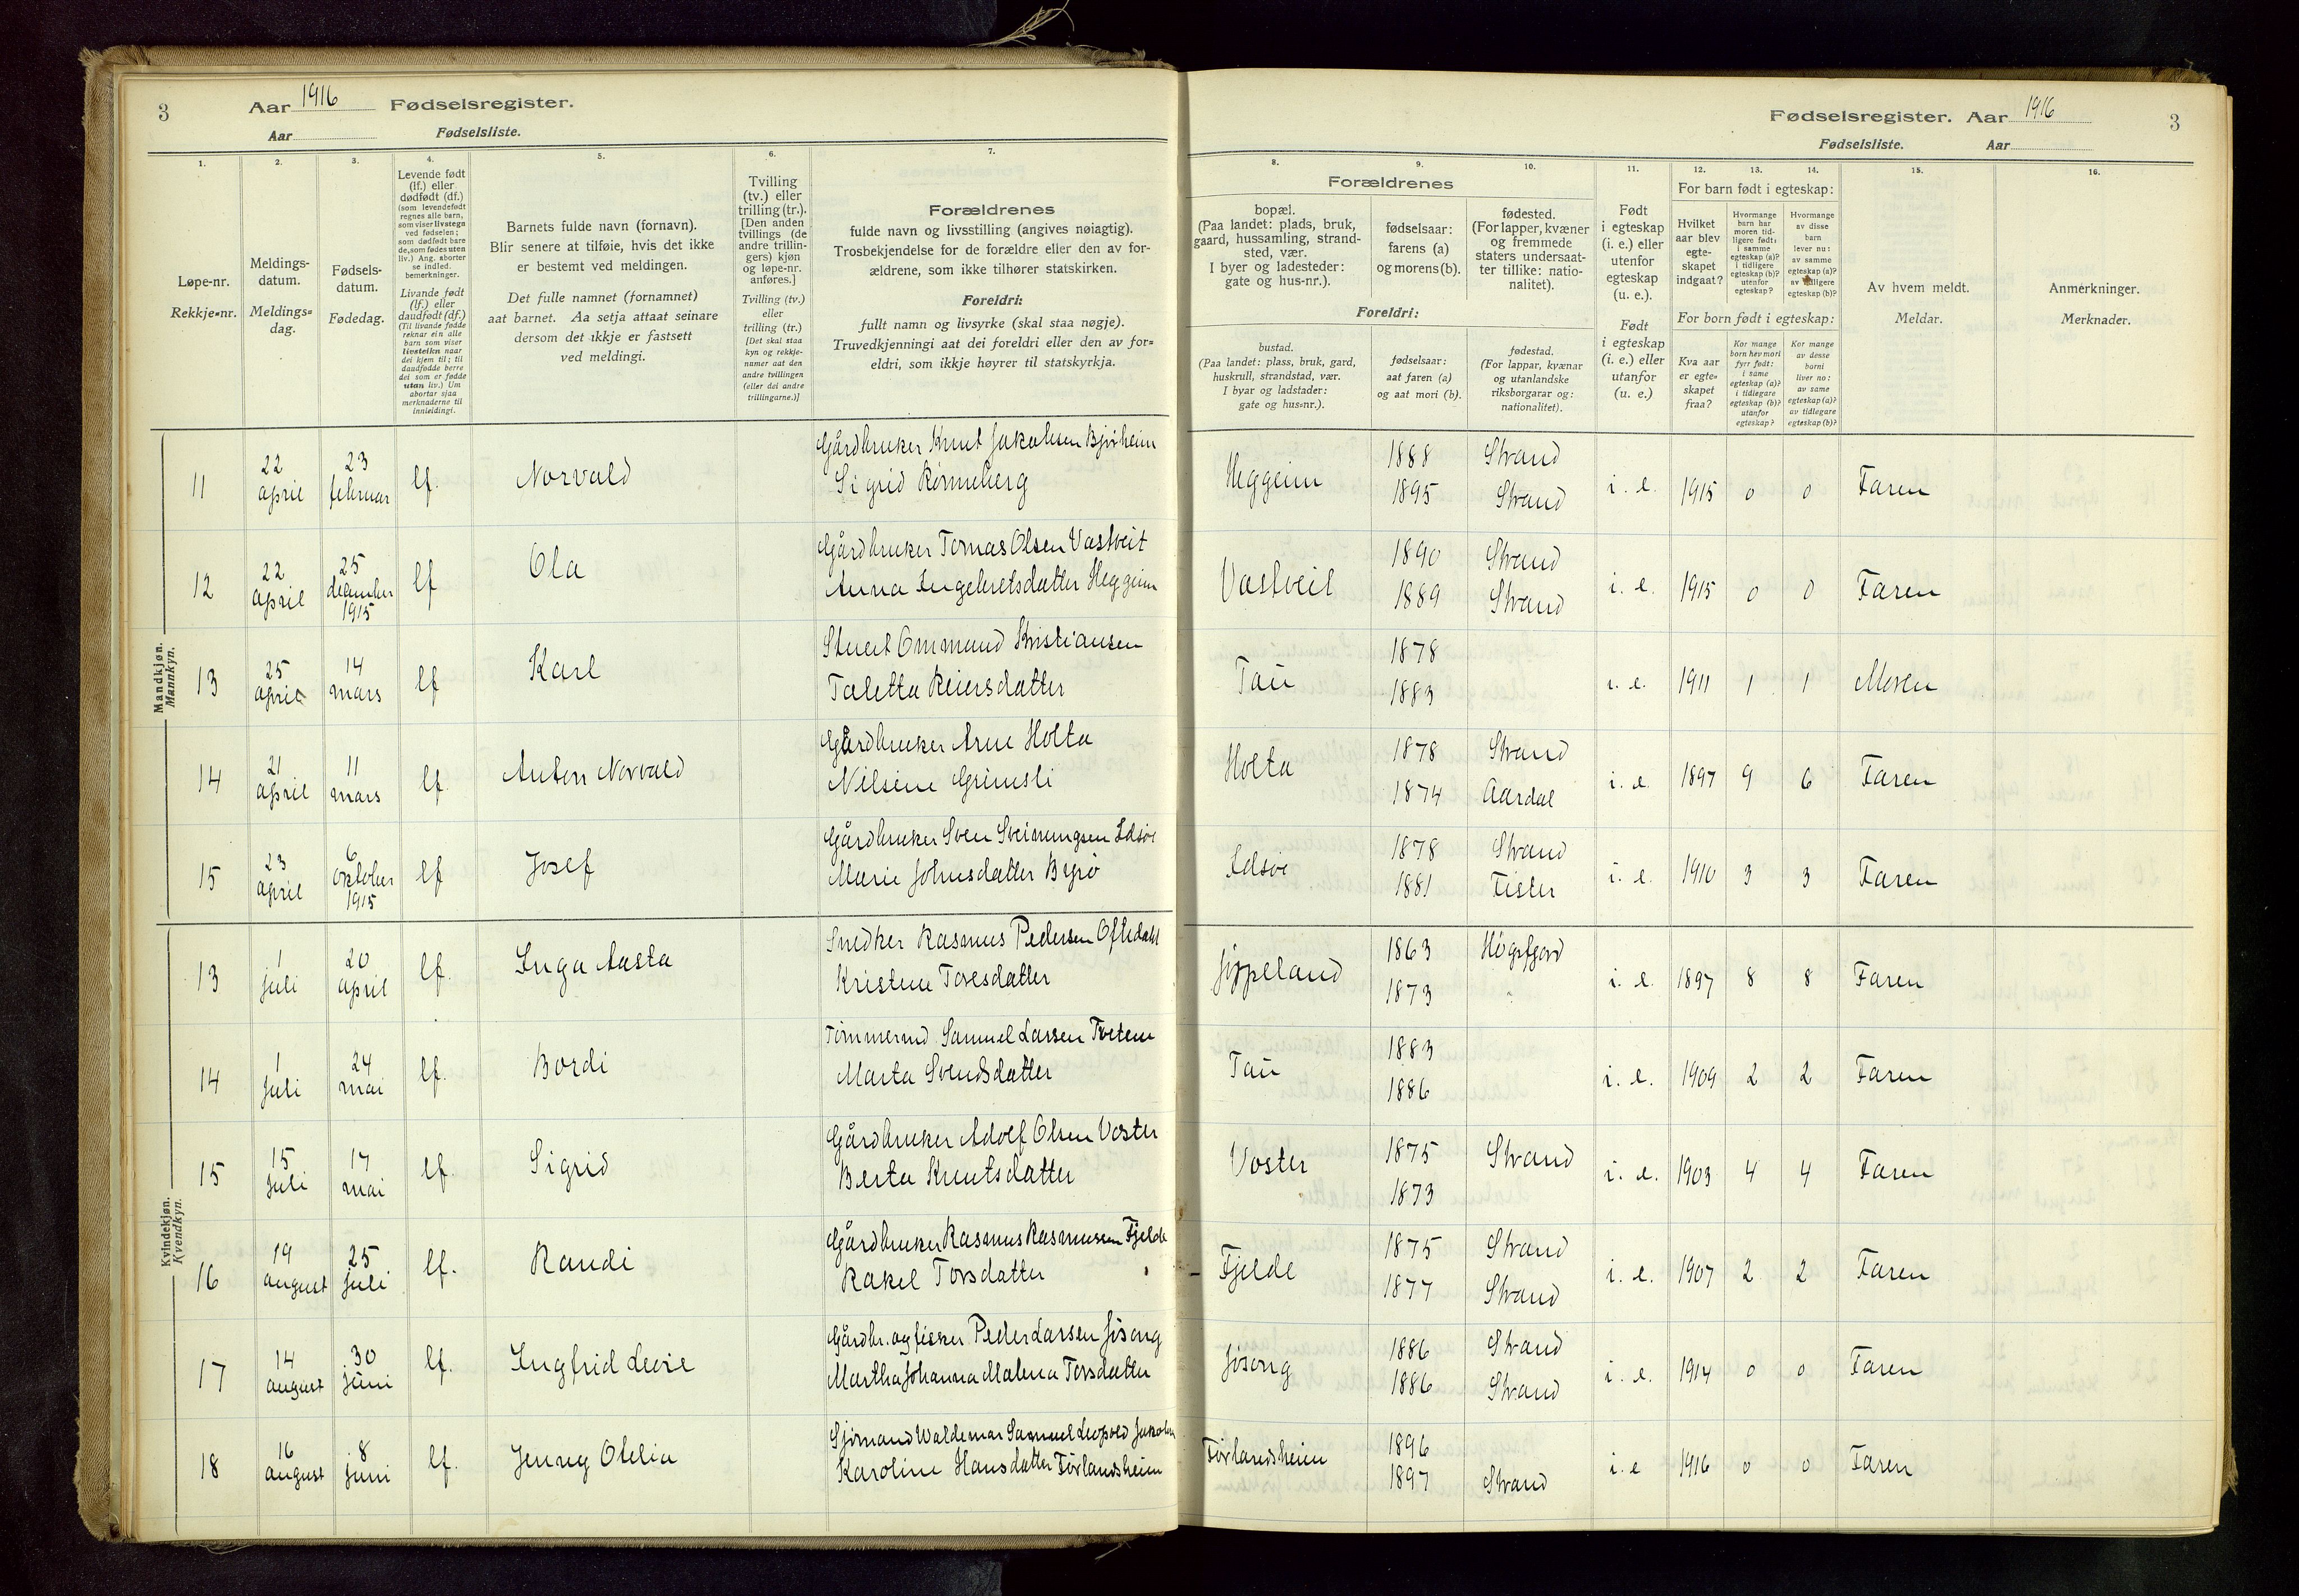 3 Aar 1916 Fødselsregister.
Aar Fødselsliste.
Fødselsregister. Aar 1916 3
Fødselsliste. Aar
1. 2. 3. 4. 5. 6. 7. 8. 9. 10. 11. 12. 13. 14. 15. 16.
Løpe-nr.
Rekkje-nr.
Meldings-
datum.
Meldings-
dag.
Fødsels-
datum.
Fødedag.
Levende født
(lf.) eller
dødfødt (df.)
(som levendefødt
regnes alle barn,
som viser livstegn
ved fødselen;
som dødfødt bare
de, som fødes uten
liv.) Ang. aborter
se indled.
bemerkninger.
Livande født
(lf.) eller
daudfødt (df.)
(Til livande fødde
reknar ein alle
barn som viser
livsteikn naar
dei kjem til; til
daudfødde berre
dei som er fødde
utan liv.) Um
abortar sjaa
merknaderne til
innleidingi.
Barnets fulde navn (fornavn).
Blir senere at tilføie, hvis det ikke
er bestemt ved meldingen.
Det fulle namnet (fornamnet)
aat barnet. Aa setja attaat seinare
dersom det ikkje er fastsett
ved meldingi.
Tvilling
(tv.) eller
trilling (tr.).
[Den anden
tvillings (de
andre trillin-
gers) kjøn
og løpe-nr.
anføres.]
Tvilling (tv.)
eller
trilling (tr.)
[Det skal staa
kyn og rekkje-
numer aat den
andre tvillingen
(eller dei andre
trillingarne.)]
Forældrenes
fulde navn og livsstilling (angives nøiagtig).
Trosbekjendelse for de forældre eller den av for-
ældrene, som ikke tilhører statskirken.
Foreldri:
fullt namn og livsyrke (skal staa nøgje).
Truvedkjenningi aat dei foreldri eller den av for-
eldri, som ikkje høyrer til statskyrkja.
Forældrenes
bopæl.
(Paa landet: plads, bruk,
gaard, hussamling, strand-
sted, vær.
I byer og ladesteder:
gate og hus-nr.).
fødselsaar:
farens (a)
og morens (b).
fødested.
(For lapper, kvæner
og fremmede
staters undersaat-
ter tillike: natio-
nalitet).
Foreldri:
bustad.
(Paa landet: plass, bruk, gard,
huskrull, strandstad, vær.
I byar og ladstader:
gate og hus-nr.).
fødselsaar:
aat faren (a)
og aat mori (b).
fødestad.
(For lappar, kvænar
og utanlandske
riksborgarar og:
nationalitet).
Født
i egteskap
(i. e.) eller
utenfor
egteskap
(u. e.).
Født
i egteskap
(i. e.) eller
utanfor
(u. e.)
For barn født i egteskap:
Hvilket
aar blev
egte-
skapet
indgaat?
Hvormange
barn har
moren tid-
ligere født:
i samme
egteskap (a)?
i tidligere
egteskap (b)?
utenfor
egteskap?
Hvormange
av disse
barn
lever nu:
av samme
egteskap (a)?
av tidligere
egteskap (b)?
For born født i egteskap:
Kva aar
er egte-
skapet
fraa?
Kor mange
born hev mori
fyrr født:
i same
egteskap (a)?
i tidlegare
egteskap (b)?
utanfor
egteskap?
Kor mange
av desse
borni
liver no:
av same
egteskap (a)?
av tidlegare
egteskap (b)?
Av hvem meldt.
Meldar.
Anmerkninger.
Merknader.
Mandkjøn.
Mannkyn.
11 22 april 23 februar lf. Norvald Gårdbruker Knut Jakobsen Bjørheim Heggeim 1888 Strand
Sigrid Rønneberg 1895 Strand i. e. 1915 0 0 Faren
12 22 april 25 december 1915 lf Ola Gårdbruker Tomas Olsen Vastveit Vastveit 1890 Strand
Anna Ingebretsdatter Heggeim 1889 Strand i. e. 1915 0 0 Faren
13 25 april 14 mars lf Karl Stuert Ommund Kristiansen Tau 1878
Taletta Reiersdatter 1883 i. e. 1911 1 1 Moren
14 21 april 11 mars lf. Anton Norvald Gårdbruker Arne Holta Holta 1878 Strand
Nilsine Grimsli 1874 Aardal i. e. 1897 9 6 Faren
15 23 april 6 oktober 1915 lf Josef Gårdbruker Sven Sveinungsen Idsøe Idsøe 1878 Strand
Marie Johnsdatter Byrø 1881 Fister i. e. 1910 3 3 Faren
Kvindekjøn.
Kvendkyn.
13 1 juli 20 april lf. Inga Aasta Snedker Rasmus Pedersen Oftedahl Jøppeland 1863 Høgsfjord
Kristine Toresdatter 1873 " i. e. 1897 8 8 Faren
14 1 juli 24 mai lf. Bordi Tømmermd. Samuel Larsen Tveten Tau 1883
Marta Svendsdatter 1886 i. e. 1909 2 2 Faren
15 15 juli 17 mai lf. Sigrid Gårdbruker Adolf Olsen Voster Voster 1875 Strand
Berta Knutsdatter 1873 i. e. 1903 4 4 Faren
16 19 august 25 juli lf. Randi Gårdbruker Rasmus Rasmussen Fjelde Fjelde 1875 Strand
Rakel Torsdatter 1877 Strand i. e. 1907 2 2 Faren
17 14 august 30 juni lf. Ingfrid Gårdbr. og fisker Peder Larsen Jøsong Jøsong 1886 Strand
Martha Johanna Malena Torsdatter 1886 Strand i. e. 1914 0 0 Faren
18 16 august 8 juni lf. Jenny Otelia Sjømand Waldemar Samuel Leopold Jakobsen Førlandsheim 1896
Karoline Hansdatter Førlandsheim 1897 Strand i. e 1916 0 0 Faren